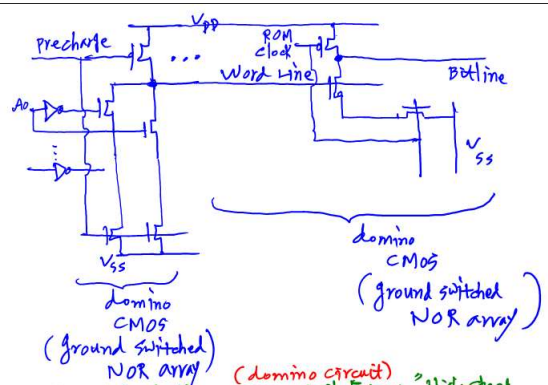 VDD
Precharge
ROM
clock
...
Word Line
Bitline
A0
VSS
VSS
domino
CMOS
(ground switched
NOR array)
domino
CMOS
(ground switched)
NOR array
(domino circuit)